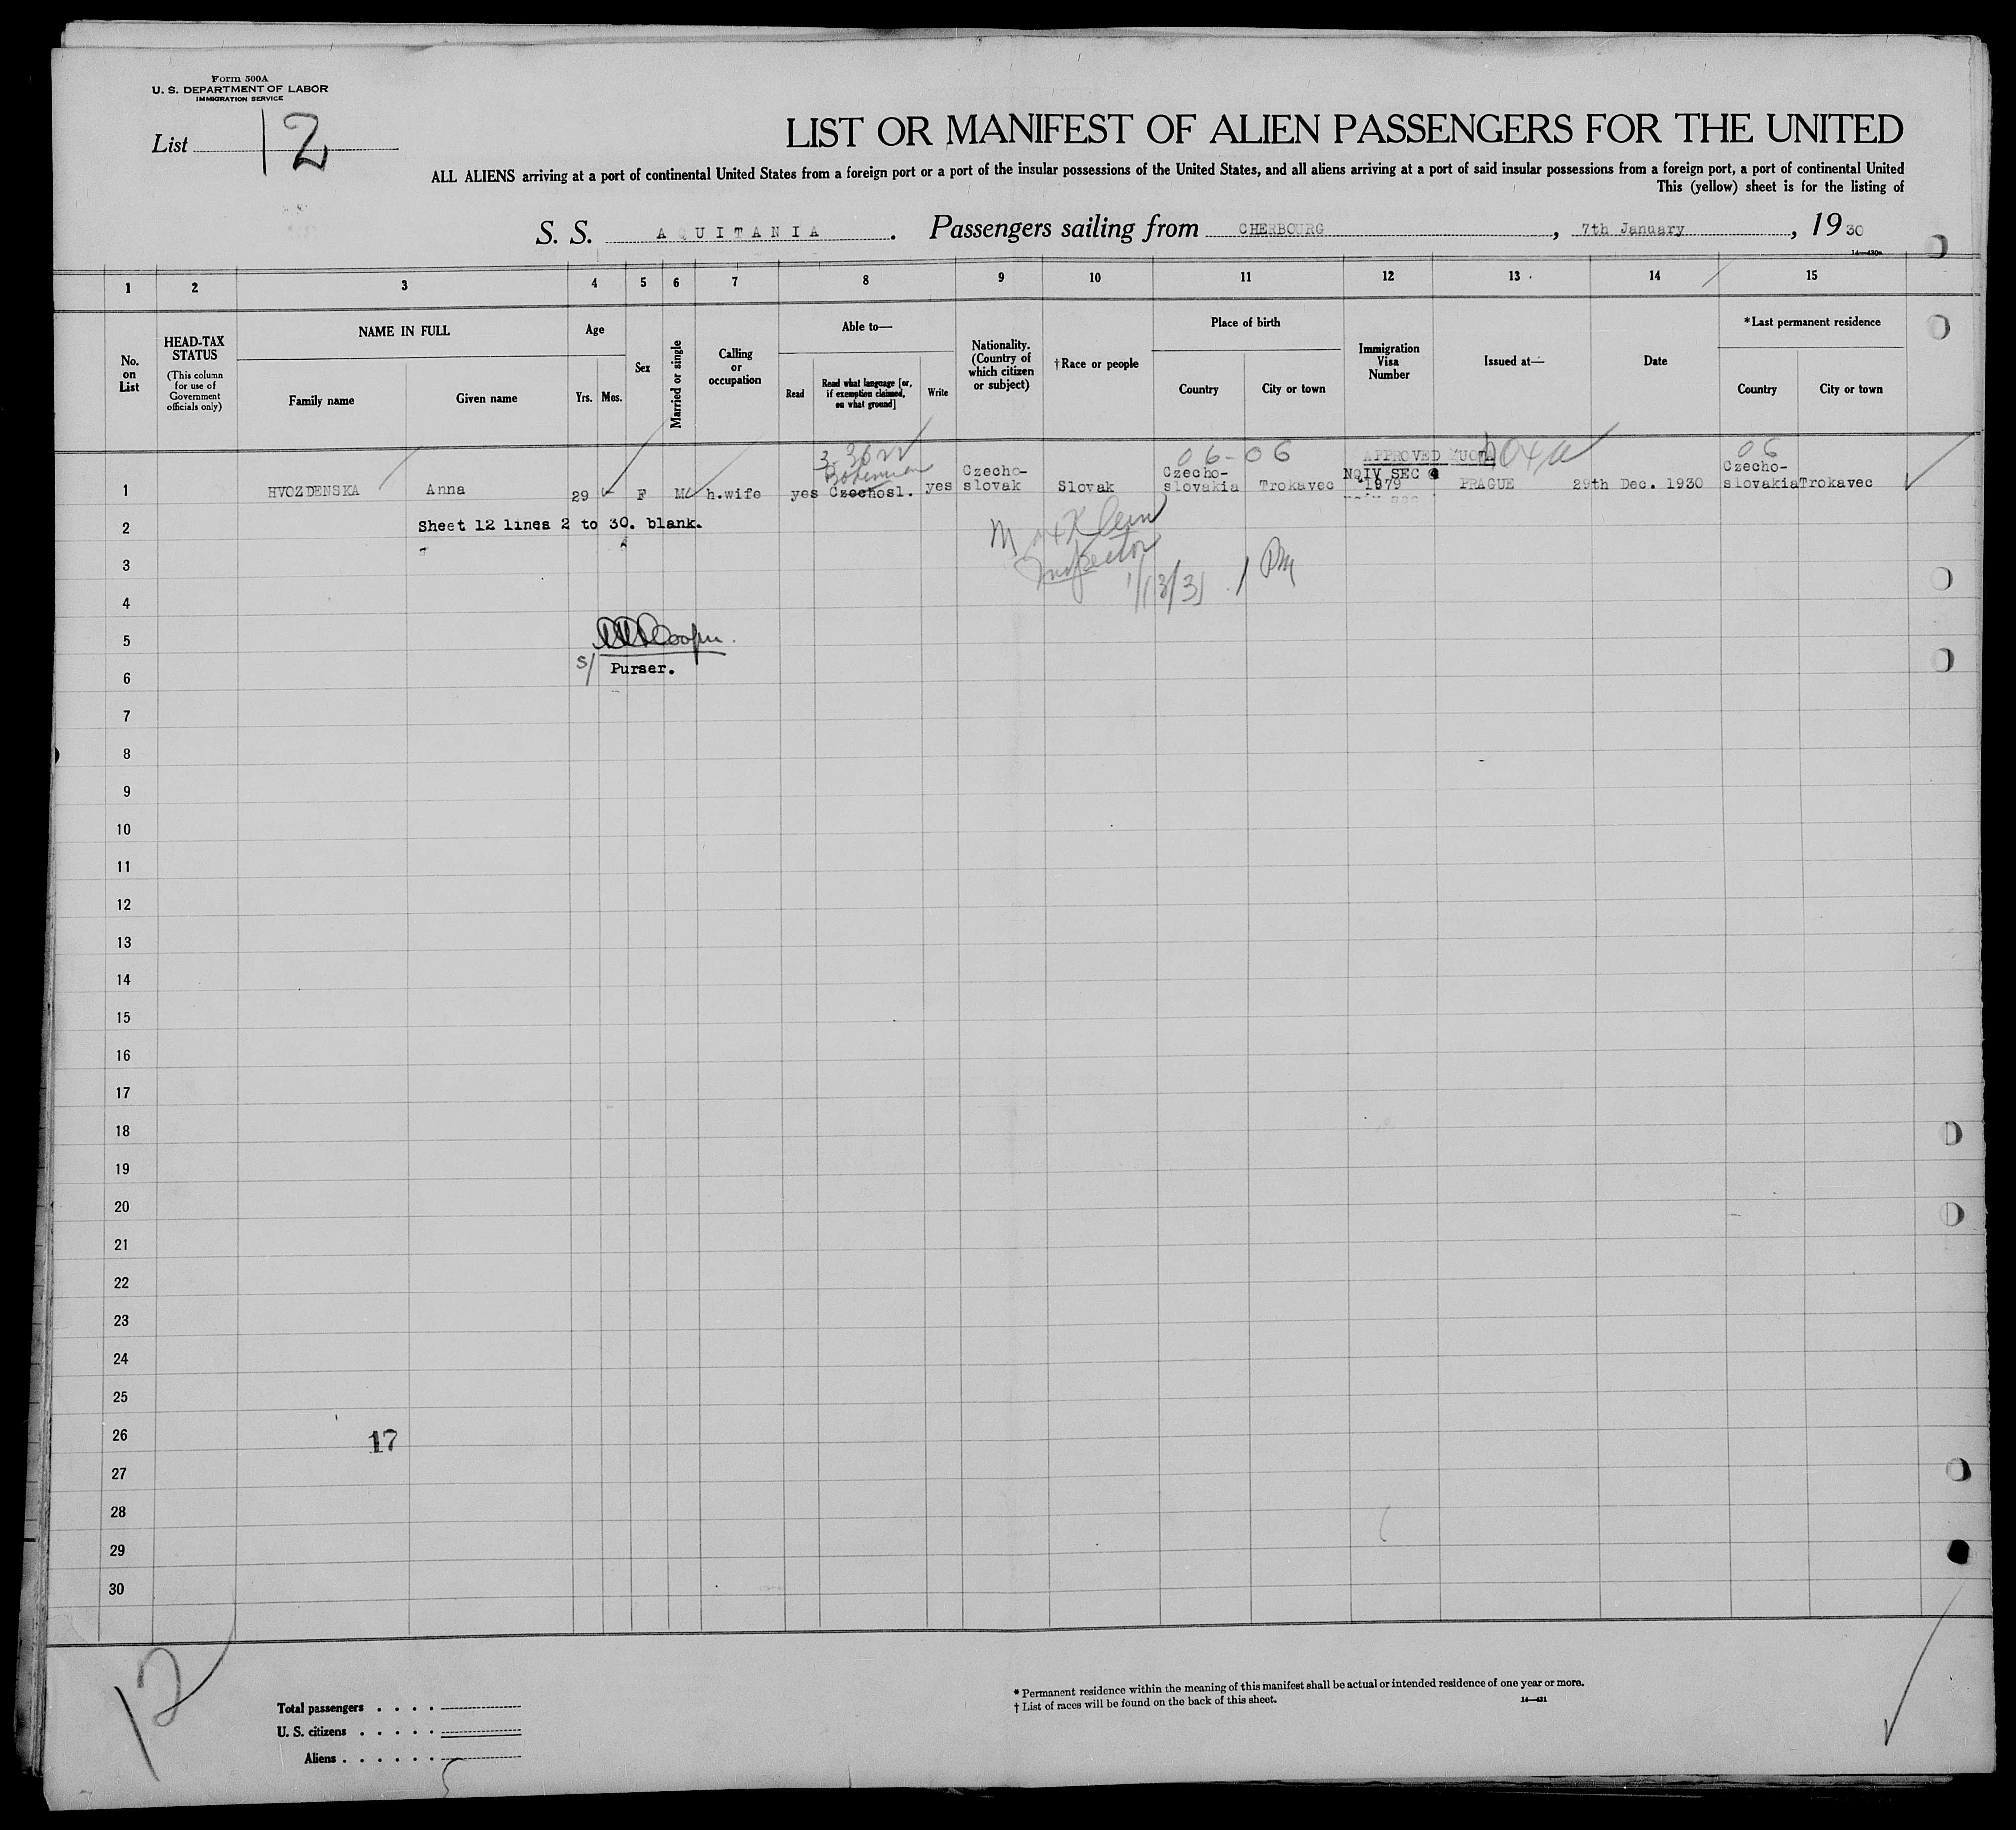 Form 500A
U. S. DEPARTMENT OF LABOR
IMMIGRATION SERVICE
List 12
LIST OR MANIFEST OF ALIEN PASSENGERS FOR THE UNITED
ALL ALIENS arriving at a port of continental United States from a foreign port or a port of the insular possessions of the United States, and all aliens arriving at a port of said insular possessions from a foreign port, a port of continental United
This (yellow) sheet is for the listing of
S. S. AQUITANIA. Passengers sailing from CHERBOURG, 7th January, 1930
14—430a
1 2 3 4 5 6 7 8 9 10 11 12 13 14 15
No. on List
HEAD-TAX STATUS
(This column for use of Government officials only)
NAME IN FULL
Family name
Given name
Age
Yrs.
Mos.
Sex
Married or single
Calling or occupation
Able to—
Read
Read what language [or, if exemption claimed, on what ground]
Write
Nationality. (Country of which citizen or subject)
†Race or people
Place of birth
Country
City or town
Immigration Visa Number
Issued at—
Date
*Last permanent residence
Country
City or town
06-06 APPROVED 06
Bohemian Czecho- Czecho- NQIV SEC Czecho-
1 HVOZDENSKA Anna 29 - F M h.wife yes Czechosl. yes slovak Slovak slovakia Trokavec 1979 PRAGUE 29th Dec. 1930 slovakia Trokavec
2 Sheet 12 lines 2 to 30. blank.
Max Klein
3 Inspector
1/13/31 1 PM
4
5 Cooper.
s/ Purser.
6
7
8
9
10
11
12
13
14
15
16
17
18
19
20
21
22
23
24
25
26 17
27
28
29
30
12
Total passengers . . . .
U. S. citizens . . . . .
Aliens . . . . . .
* Permanent residence within the meaning of this manifest shall be actual or intended residence of one year or more.
† List of races will be found on the back of this sheet. 14—431